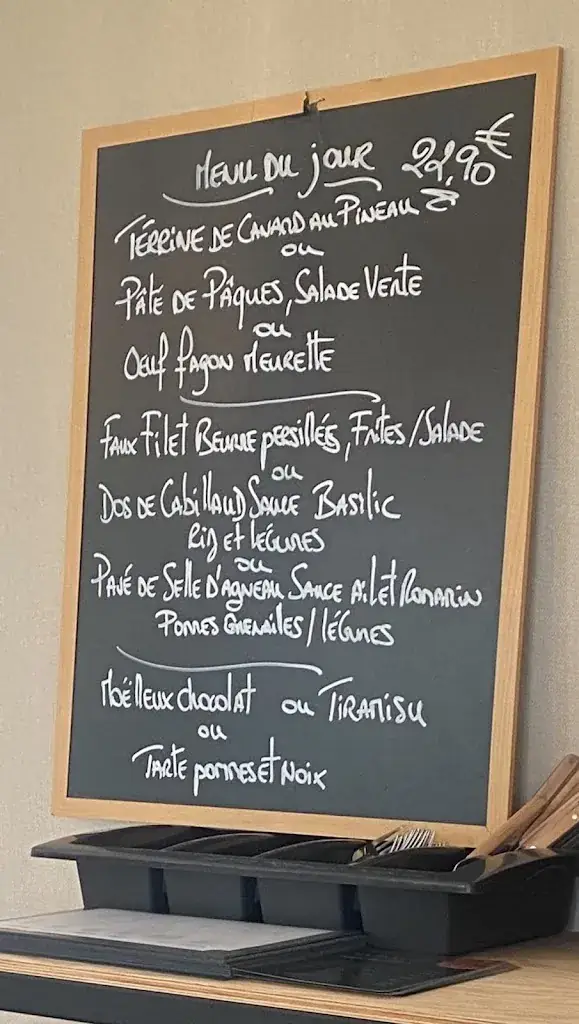 MENU DU jOUR 22,90€
TÉRRINE DE CANARD AU PINEAU
ou
PÂTÉ DE PÂQUES, SALADE VERTE
ou
OEUF façon MEURETTE
FAUX FILET BEURRE PERSILLÉS, FRITES / SALADE
ou
DOS DE CABILLAUD SAUCE BASILIC
RIZ ET LÉGUMES
ou
PAVÉ DE SELLE D'AGNEAU SAUCE AIL ET ROMARIN
POMMES GRENAILLES / LÉGUMES
MOËLLEUX chocolat ou TIRAMISU
ou
TARTE POMMES ET NOIX